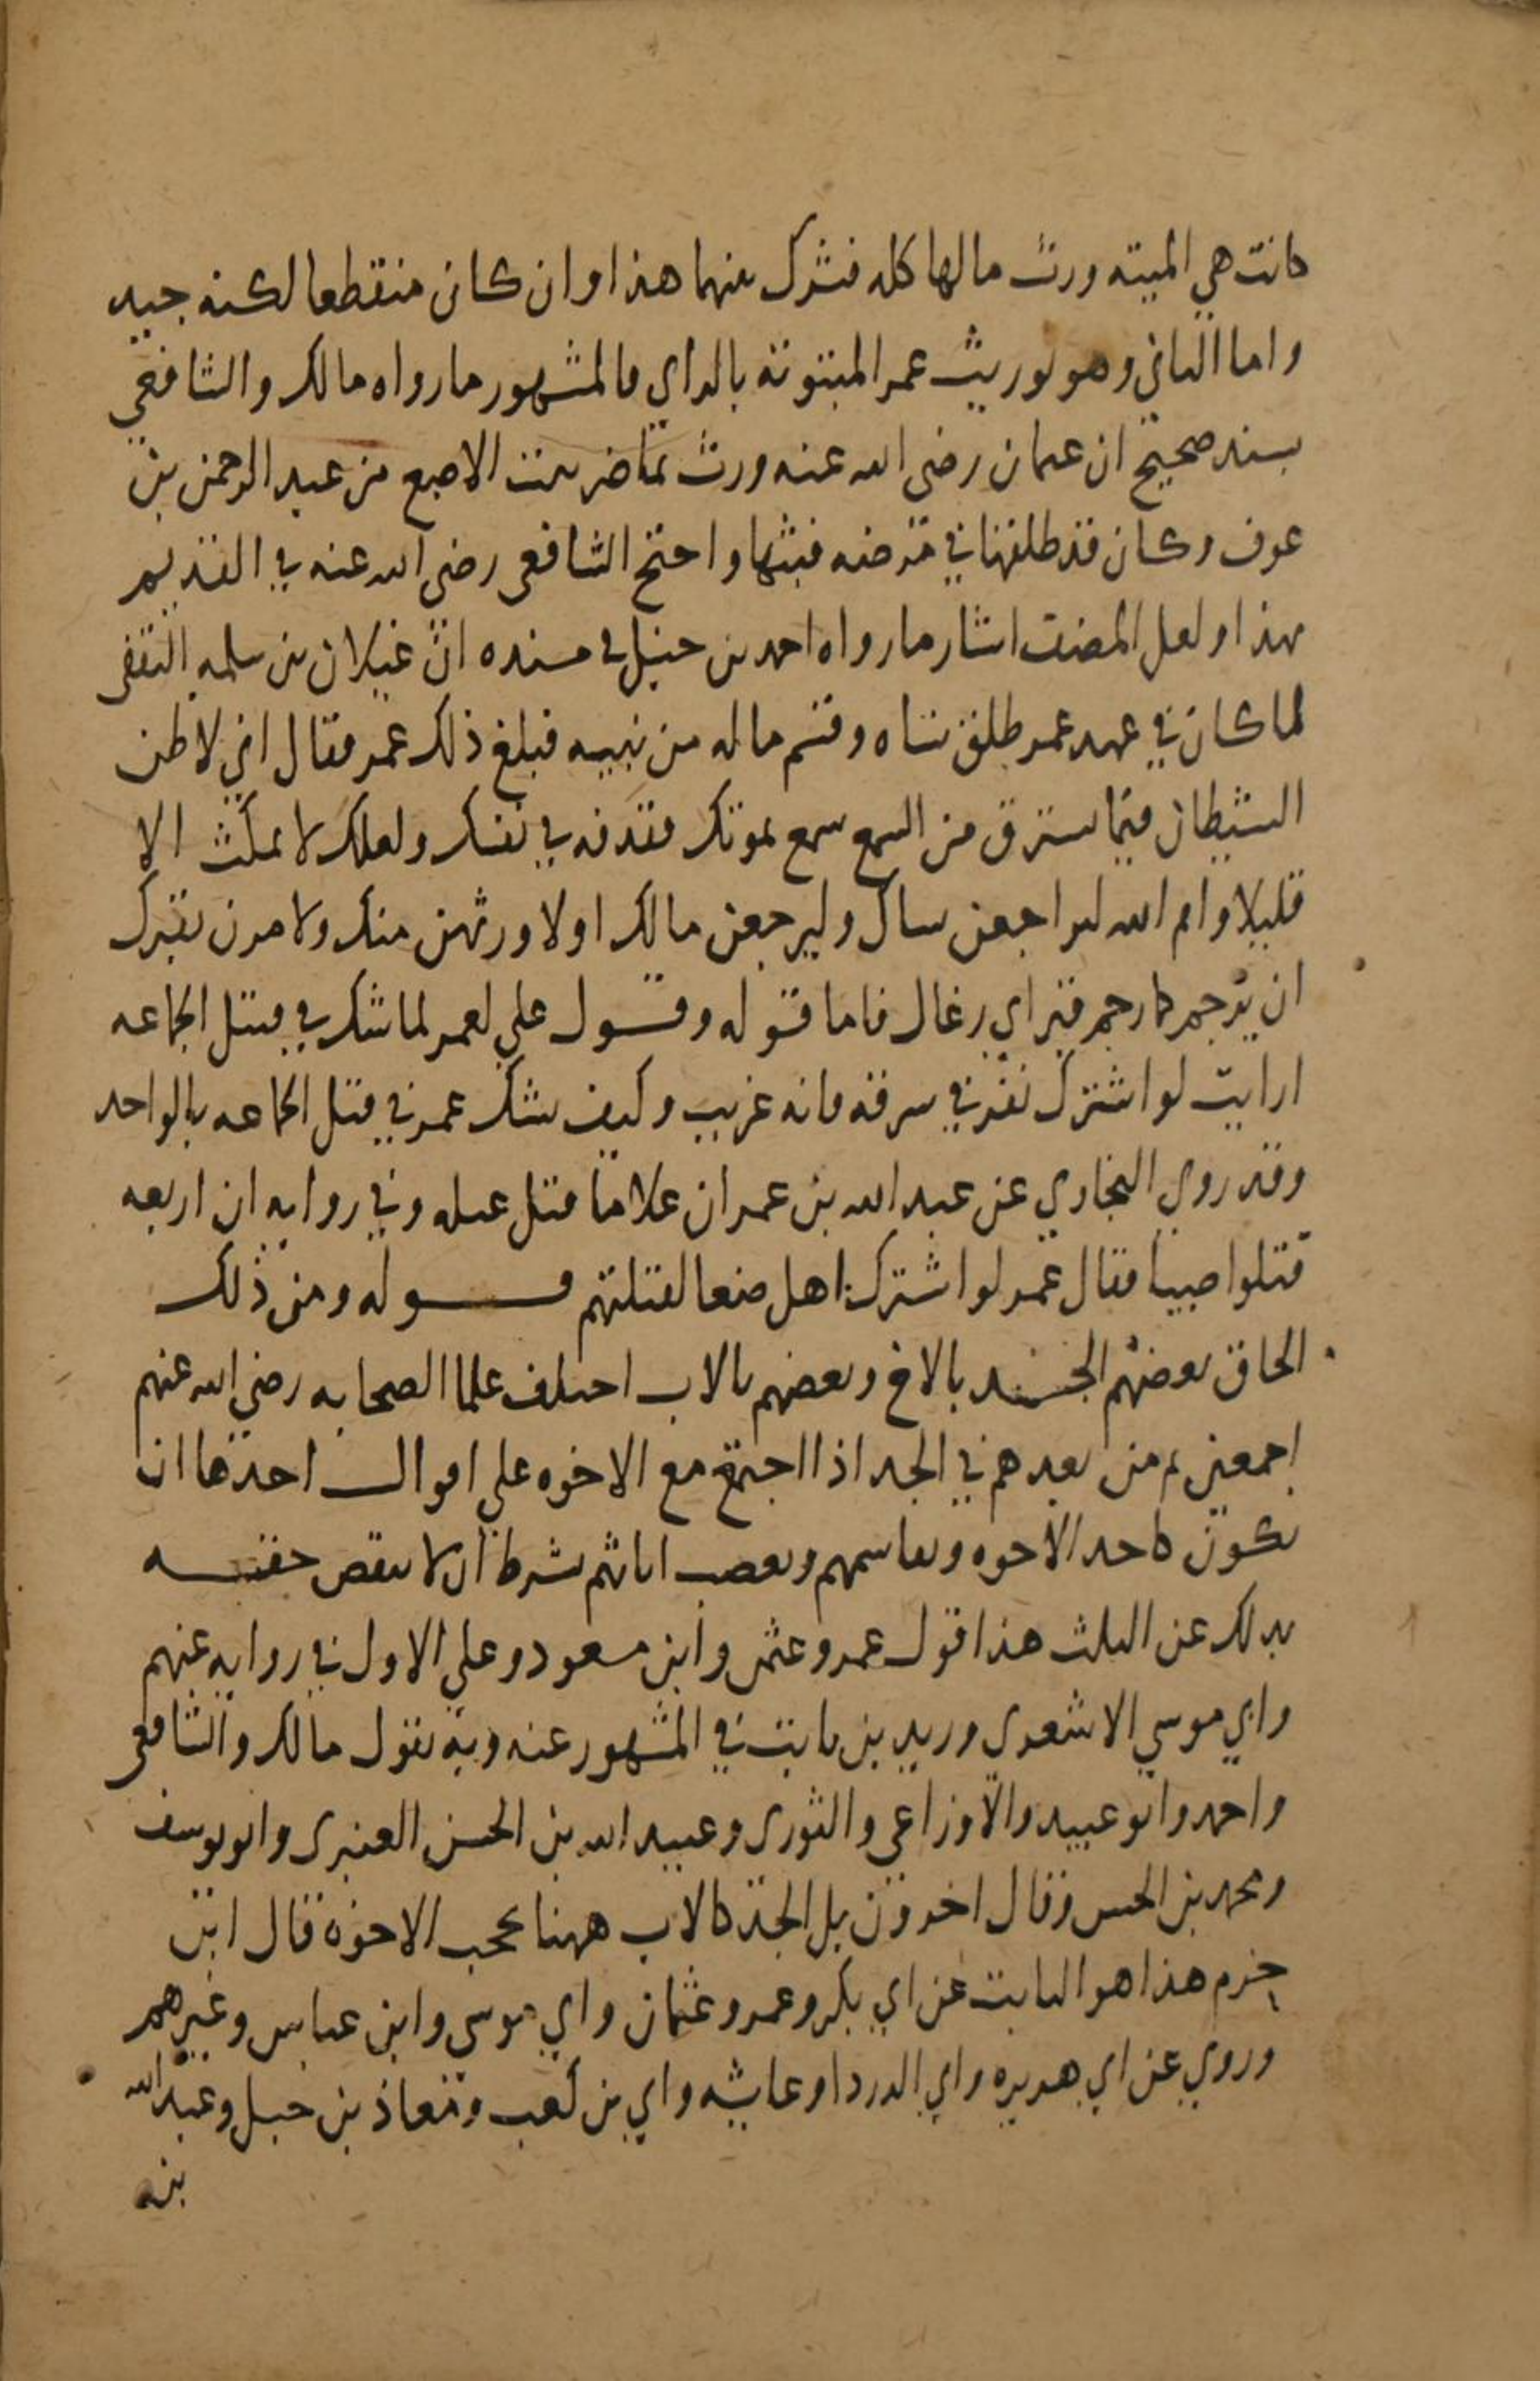 كانت هي الميته ورث مالها كله فشرك بينهما هذا وان كان منقطعا لكنه جيد
واما الثاني وهو توريث عمر المبتوتة بالراي فالمشهور ما رواه مالك والشافعي
بسند صحيح ان عثمان رضي الله عنه ورث تماضر بنت الاصبع من عبد الرحمن بن
عوف وكان قد طلقها في مرضه فبتها واحتج الشافعي رضي الله عنه في القديم
بهذا ولعل المصنف اشار ما رواه احمد بن حنبل في مسنده ان غيلان بن سلمه الثقفي
لما كان في عهد عمر طلق نساه وقسم ماله بين بنيه فبلغ ذلك عمر فقال اني لاظن
الشيطان فيما يسترق من السمع سمع بموتك فقذفه في نفسك ولعلك لا تمكث الا
قليلا وايم الله لتراجعن نساك وليرجعن مالك او لاورثهن منك ولامرن بقبرك
ان يرجم كما رجم قبر ابي رغال فاما قوله وقول علي لعمر لما شك في قتل الجماعه
ارايت لو اشترك نفر في سرقه فانه غريب وكيف يشك عمر في قتل الجماعه بالواحد
وقد روي البخاري عن عبد الله بن عمر ان غلاما قتل غيله وفي روايه ان اربعه
قتلوا صبيا فقال عمر لو اشترك اهل صنعا لقتلتهم قوله ومن ذلك
الحاق بعضهم الجد بالاخ وبعضهم بالاب اختلف علما الصحابه رضي الله عنهم
اجمعين ثم من بعدهم في الجد اذا اجتمع مع الاخوه على اقوال احدها ان
يكون كاحد الاخوه ويقاسمهم ويعصب اناثهم بشرط ان لا ينقص حقه
بذلك عن الثلث هذا قول عمر وعثمن وابن مسعود وعلي الاول في روايه عنهم
وابي موسي الاشعري وزيد بن ثابت في المشهور عنه وبه يقول مالك والشافعي
واحمد وابو عبيد والاوزاعي والثوري وعبيد الله بن الحسن العنبري وابو يوسف
ومحمد بن الحسن وقال اخرون بل الجد كالاب ههنا يحجب الاخوة قال ابن
حزم هذا هو الثابت عن ابي بكر وعمر وعثمان وابي موسي وابن عباس وغيرهم
وروي عن ابي هريره وابي الدردا وعايشه وابي بن كعب ومعاذ بن جبل وعبد الله
بن